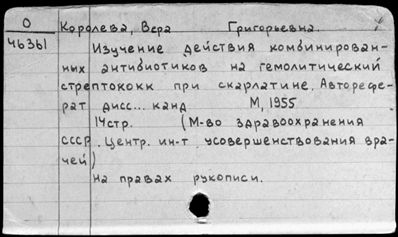 О
46361
Королева, Вера Григорьевна.
Изучение действия комбинирован-
ных антибиотиков на гемолитический
стрептококк при скарлатине. Авторефе-
рат дисс... канд М, 1955
14стр. (М-во здравоохранения
СССР. Центр. ин-т усовершенствования вра-
чей)
на правах рукописи.